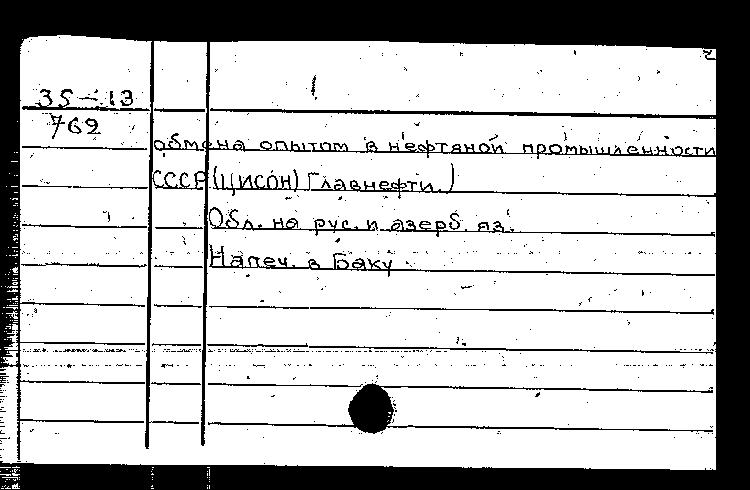 2
35-13
762
обмена опытом в нефтяной промышленности
СССР (ЦИСОН) Главнефти.)
Обл. на рус. и азерб. яз.
Напеч. в Баку